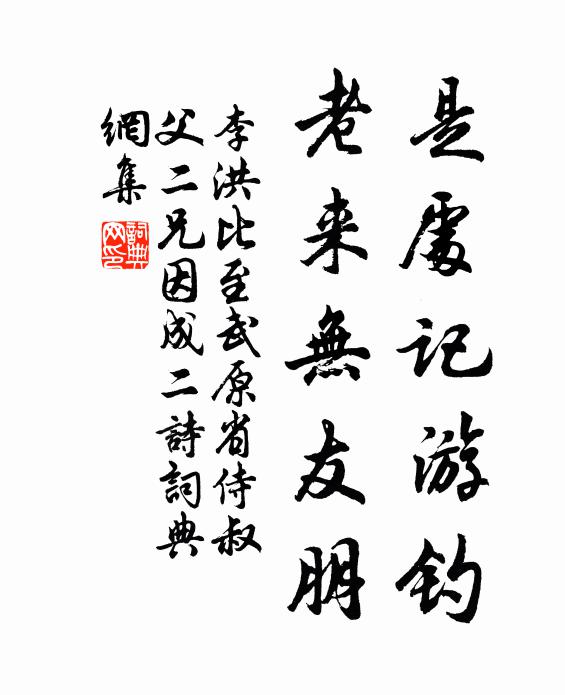 是處记游钓
老来無友朋
李洪比至武原省侍叔
父二兄因成二詩詞典
網集
詞典网印